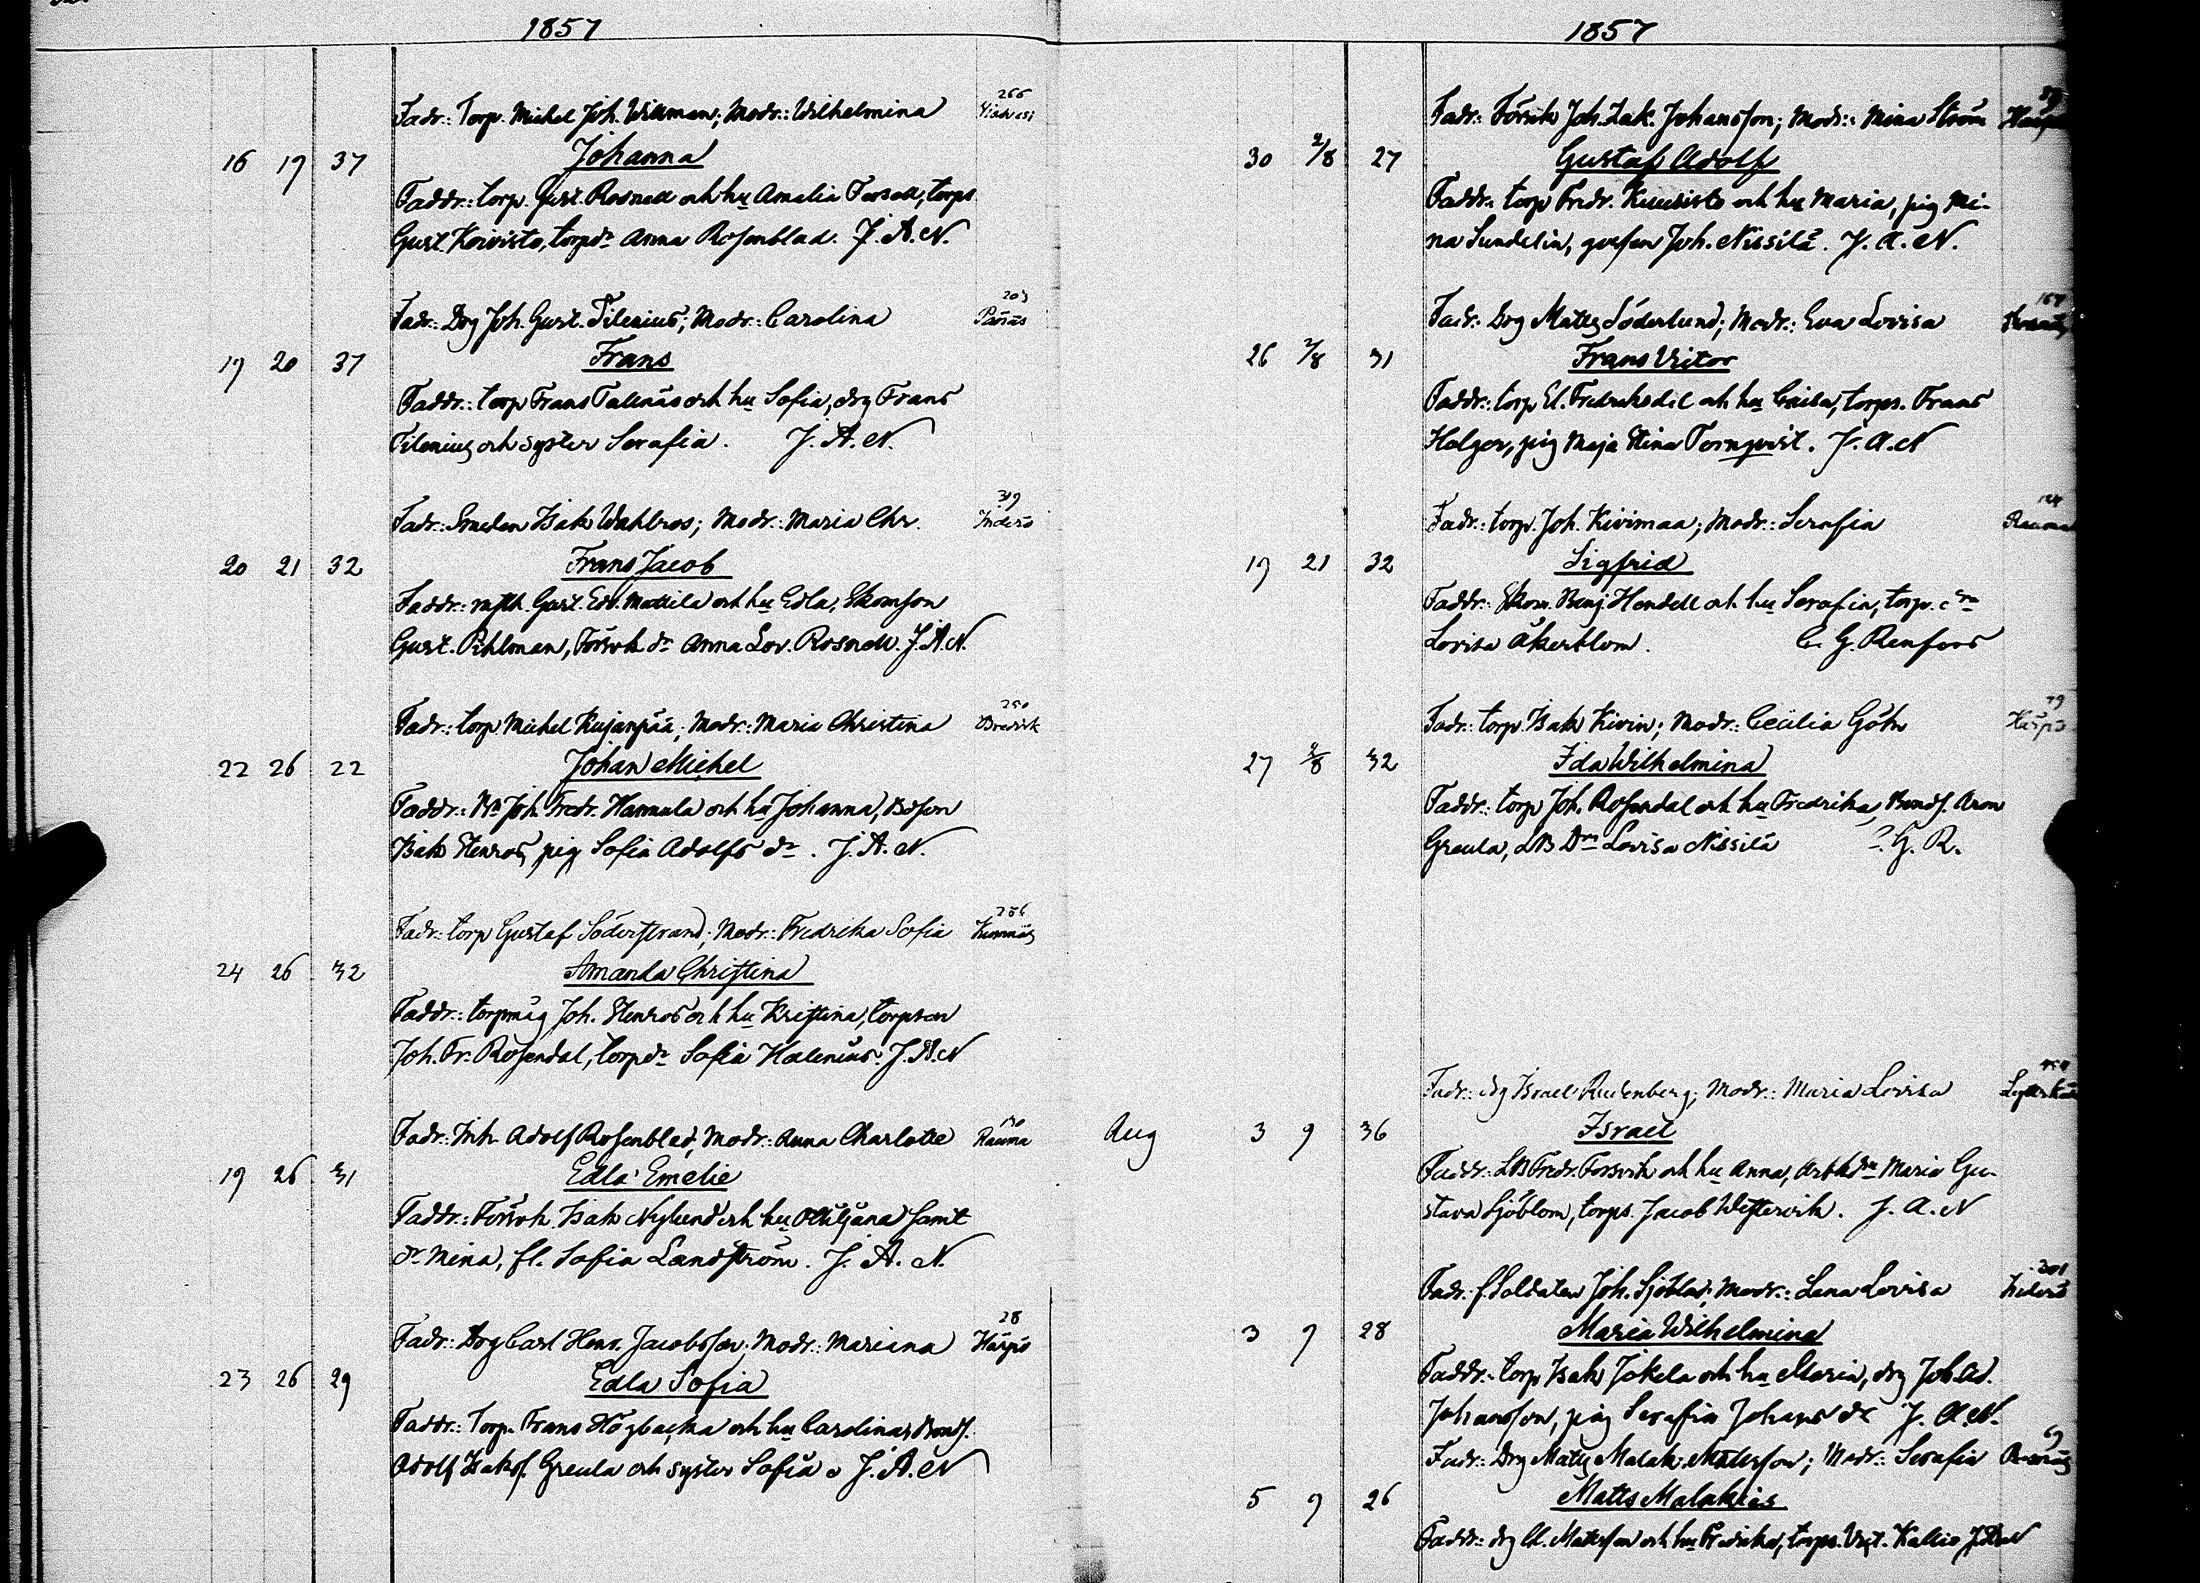 1857
Fadr.: Torp. Michel Joh. Willman; Modr.: Wilhelmina 266
16 19 37 Johanna
Faddr.: torp. Gust. Rosnell och hu Amalia Forsell, torps
Gust. Koivisto, torpdr Anna Rosenblad. J. A. N.
Fadr.: Drg Joh. Gust. Filenius; Modr.: Carolina 203 Panäs
19 20 37 Frans
Faddr.: torp Frans Tallnäs och hu Sofia, drg Frans
Filenius och syster Serafia. J. A. N.
Fadr.: Smeden Isak Wahlroos; Modr.: Maria Chr. 319 Inderö
20 21 32 Frans Jacob
Faddr.: Gust. Edv. Mattila och hu Edla, Skomson
Gust. Pihlman, dr Anna Lov. Rosnell. J. A. N.
Fadr.: torp Michel Kujanpää; Modr.: Maria Christina 250 Bredvik
22 26 22 Johan Michel
Faddr.: Bn Joh. Fredr. Hannula och hu Johanna, Bdson
Isak Henros, pig Sofia Adolfs dr. J. A. N.
Fadr.: torp Gustaf Söderstrand; Modr.: Fredrika Sofia 286 Kumnäs
24 26 32 Amanda Christina
Faddr.: torpmåg Joh. Henros och hu Kristina, torpson
Joh. Fr. Rosendal, torpdr Sofia Halenius. J. A. N
Fadr.: Inh. Adolf Rosenblad, Modr.: Anna Charlotte 130 Rauma
19 26 31 Edla Emelie
Faddr.: Isak Nylund och hu Uliljana samt
dr Mina, fl. Sofia Landström. J. A. N.
Fadr.: Drg Carl Henr. Jacobsson; Modr.: Mariana 28 Harpö
23 26 29 Edla Sofia
Faddr.: Torp. Frans Högbacka och hu Carolina, Bonds.
Adolf Isaks. Greula och syster Sofia. J. A. N
1857
Fadr.: Joh. Zak. Johansson; Modr.: Mina Ström 29
30 2/8 27 Gustaf Adolf
Faddr.: torp Fredr. Kuusisto och hu Maria, pig Mi-
na Sundelin, Joh. Nissilä. J. A. N.
Fadr.: Drg Matts Söderlund; Modr.: Eva Lovisa
26 2/8 31 Frans Victor
Faddr.: torp El. Fredriksdal och hu Caisa, torps. Frans
Helger, pig Maja Stina Tornqvist. J. A. N
Fadr.: torp. Joh. Kivimaa; Modr.: Serafia 124 Rauma
19 21 32 Sigfrid
Faddr.: Skom. Benj. Hendell och hu Serafia, torp.
Lovisa Åkerblom. C. G. Renfors
Fadr.: torp Isak Kivin; Modr.: Cecilia Göhn 29 Harpö
27 2/8 32 Ida Wilhelmina
Faddr.: torp Joh. Rosendal och hu Fredrika, Bonds. Aron
Greula, LB Drn Lovisa Nissilä C. G. R.
Fadr.: drg Israel Rudenberg; Modr.: Maria Lovisa
Aug 3 9 36 Israel
Faddr.: LB Fredr. Forsvik och hu Anna, Maria Gu-
stava Sjöblom, torps. Jacob Westervik. J. A. N
Fadr.: f. Soldaten Joh. Sjöblad; Modr.: Lena Lovisa 301 Inderö
3 9 28 Maria Wilhelmina
Faddr.: torp Isak Jokela och hu Maria, drg Joh. Ad.
Johansson, pig Serafia Johans dr J. A. N.
Fadr.: Drg Matts Malak. Mattsson; Modr.: Serafia 69
5 9 26 Matts Malakias
Faddr.: drg El. Mattsson och hu Fredrika, torps. Vict. Kallio J. A. N